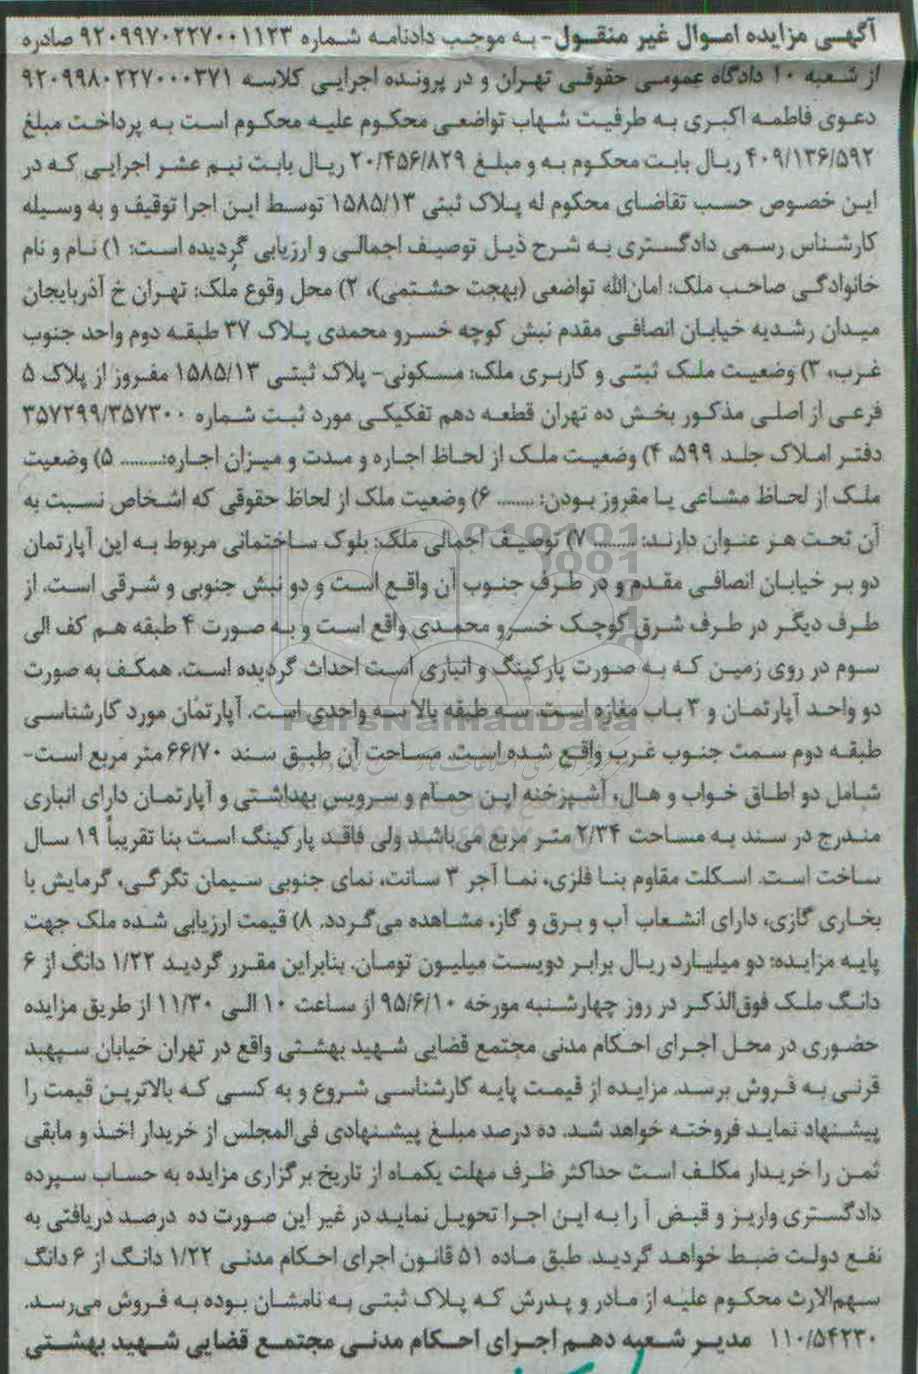 آگهی مزایده اموال غیر منقول- به موجب دادنامه شماره ۹۲۰۹۹۷۰۲۲۷۰۰۱۱۲۳ صادره
از شعبه ۱۰ دادگاه عمومی حقوقی تهران و در پرونده اجرایی کلاسه ۹۲۰۹۹۸۰۲۲۷۰۰۰۳۷۱
دعوی فاطمه اکبری به طرفیت شهاب تواضعی محکوم علیه محکوم است به پرداخت مبلغ
۴۰۹/۱۳۶/۵۹۲ ریال بابت محکوم به و مبلغ ۲۰/۴۵۶/۸۲۹ ریال بابت نیم عشر اجرایی که در
این خصوص حسب تقاضای محکوم له پلاک ثبتی ۱۵۸۵/۱۳ توسط این اجرا توقیف و به وسیله
کارشناس رسمی دادگستری به شرح ذیل توصیف اجمالی و ارزیابی گردیده است: ۱) نام و نام
خانوادگی صاحب ملک: امان‌الله تواضعی (بهجت حشتمی)، ۲) محل وقوع ملک: تهران خ آذربایجان
میدان رشدیه خیابان انصافی مقدم نبش کوچه خسرو محمدی پلاک ۳۷ طبقه دوم واحد جنوب
غرب، ۳) وضعیت ملک ثبتی و کاربری ملک: مسکونی- پلاک ثبتی ۱۵۸۵/۱۳ مفروز از پلاک ۵
فرعی از اصلی مذکور بخش ده تهران قطعه دهم تفکیکی مورد ثبت شماره ۳۵۷۲۹۹/۳۵۷۳۰۰
دفتر املاک جلد ۵۹۹، ۴) وضعیت ملک از لحاظ اجاره و مدت و میزان اجاره:........ ۵) وضعیت
ملک از لحاظ مشاعی یا مفروز بودن: ....... ۶) وضعیت ملک از لحاظ حقوقی که اشخاص نسبت به
آن تحت هر عنوان دارند: ......... ۷) توصیف اجمالی ملک: بلوک ساختمانی مربوط به این آپارتمان
دو بر خیابان انصافی مقدم و در طرف جنوب آن واقع است و دو نبش جنوبی و شرقی است. از
طرف دیگر در طرف شرق کوچک خسرو محمدی واقع است و به صورت ۴ طبقه هم کف الی
سوم در روی زمین که به صورت پارکینگ و انباری است احداث گردیده است. همکف به صورت
دو واحد آپارتمان و ۳ باب مغازه است سه طبقه بالا به واحدی است. آپارتمان مورد کارشناسی
طبقه دوم سمت جنوب غرب واقع شده است. مساحت آن طبق سند ۶۶/۷۰ متر مربع است-
شامل دو اطاق خواب و هال، آشپزخنه اپن حمام و سرویس بهداشتی و آپارتمان دارای انباری
مندرج در سند به مساحت ۲/۳۴ متر مربع می‌باشد ولی فاقد پارکینگ است بنا تقریباً ۱۹ سال
ساخت است. اسکلت مقاوم بنا فلزی، نما آجر ۳ سانت، نمای جنوبی سیمان تگرگی، گرمایش با
بخاری گازی، دارای انشعاب آب و برق و گاز، مشاهده می‌گردد. ۸) قیمت ارزیابی شده ملک جهت
پایه مزایده: دو میلیارد ریال برابر دویست میلیون تومان. بنابراین مقرر گردید ۱/۲۲ دانگ از ۶
دانگ ملک فوق‌الذکر در روز چهارشنبه مورخه ۹۵/۶/۱۰ از ساعت ۱۰ الی ۱۱/۳۰ از طریق مزایده
حضوری در محل اجرای احکام مدنی مجتمع قضایی شهید بهشتی واقع در تهران خیابان سپهبد
قرنی به فروش برسد. مزایده از قیمت پایه کارشناسی شروع و به کسی که بالاترین قیمت را
پیشنهاد نماید فروخته خواهد شد. ده درصد مبلغ پیشنهادی فی‌المجلس از خریدار اخذ و مابقی
ثمن را خریدار مکلف است حداکثر ظرف مهلت یکماه از تاریخ برگزاری مزایده به حساب سپرده
دادگستری واریز و قبض آ را به این اجرا تحویل نماید در غیر این صورت ده درصد دریافتی به
نفع دولت ضبط خواهد گردید. طبق ماده ۵۱ قانون اجرای احکام مدنی ۱/۲۲ دانگ از ۶ دانگ
سهم‌الارث محکوم علیه از مادر و پدرش که پلاک ثبتی به نامشان بوده به فروش می‌رسد.
۱۱۰/۵۴۲۳۰ مدیر شعبه دهم اجرای احکام مدنی مجتمع قضایی شهید بهشتی
ParsNamadData